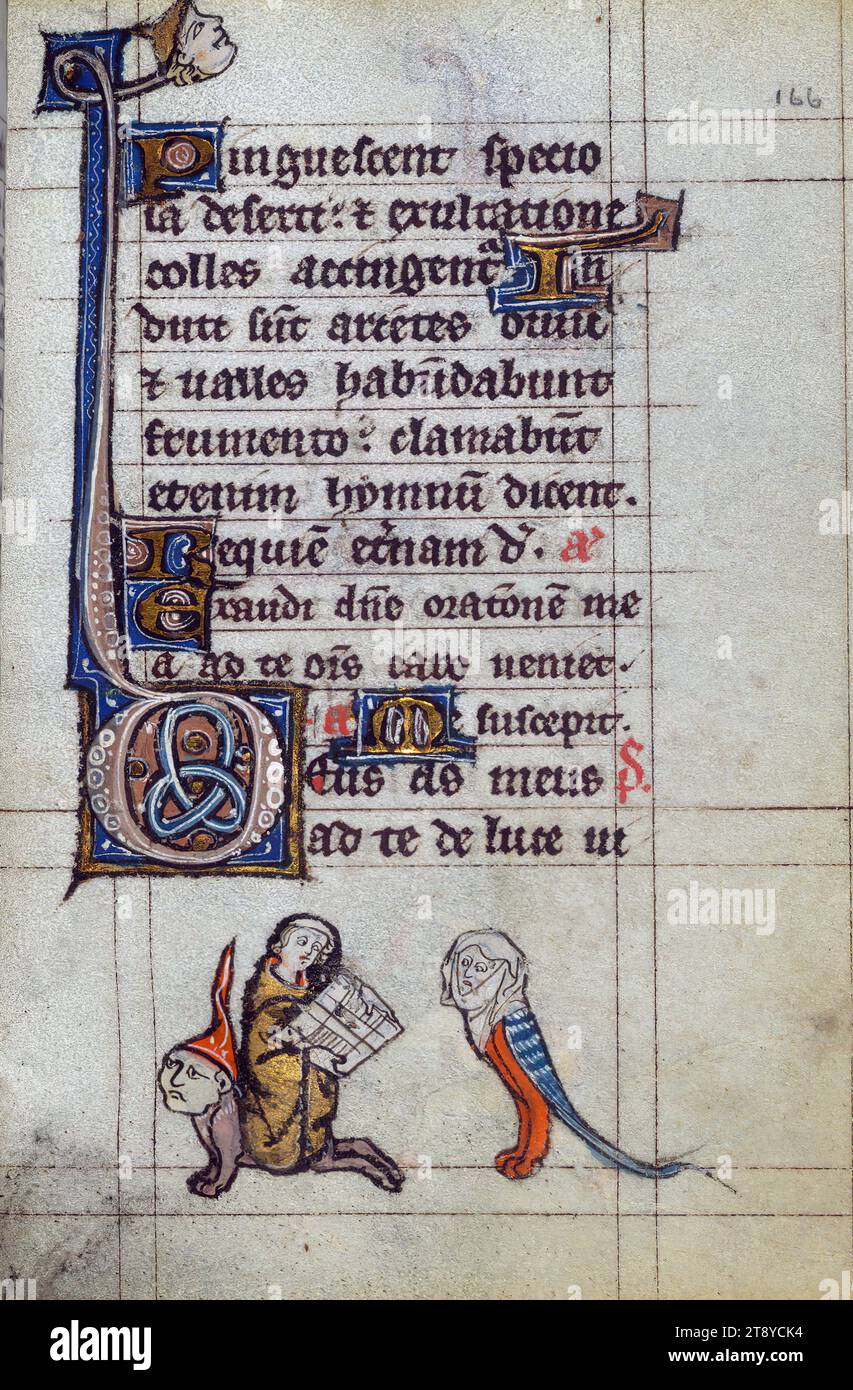 166
Pinguescent specio
sa deserti: ⁊ exultatione
colles accingentᷓ In
duti sūt arietes oviū
⁊ ualles habūdabunt
frumento: clamabūt
etenim hymnū dicent.
Requiē et̄nam d̛. a᷒
Exaudi dn̄e orationē me
a ad te oīs caro veniet.
a Me suscepit.
Deus ds meus ps̄.
ad te de luce vi
alamy
Image ID: 2T8YCK4
www.alamy.com